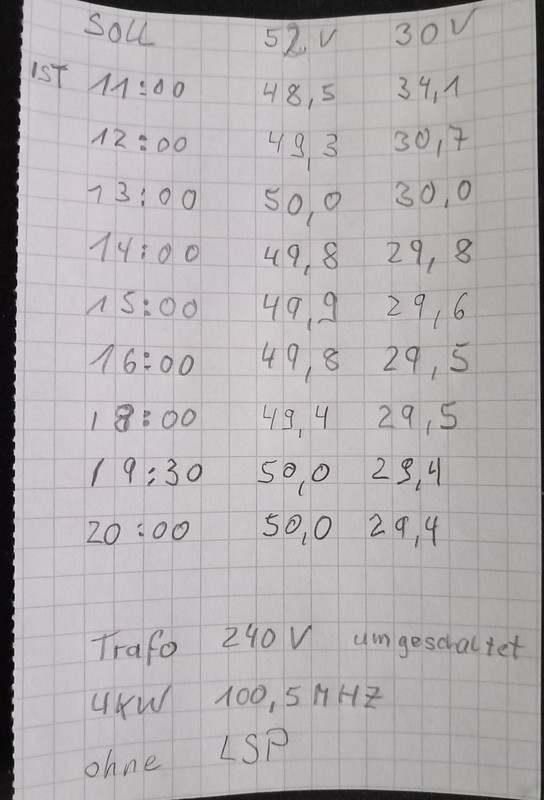 SOLL 52 V 30 V
IST 11:00 48,5 34,1
12:00 49,3 30,7
13:00 50,0 30,0
14:00 49,8 29,8
15:00 49,9 29,6
16:00 49,8 29,5
18:00 49,4 29,5
19:30 50,0 29,4
20:00 50,0 29,4
Trafo 240 V umgeschaltet
UKW 100,5 MHZ
ohne LSP